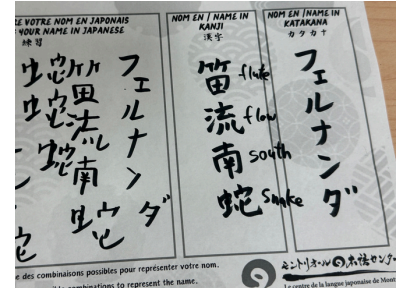 VOTRE NOM EN JAPONAIS
YOUR NAME IN JAPANESE
練習
フェルナンダ
笛流南蛇
蛇蛇蛇
NOM EN / NAME IN
KANJI
漢字
笛 flute
流 flow
南 south
蛇 Snake
NOM EN / NAME IN
KATAKANA
カタカナ
フェルナンダ
e des combinaisons possibles pour représenter votre nom.
combinations to represent the name.
モントリオールの日本語センター
Le centre de la langue japonaise de Mont